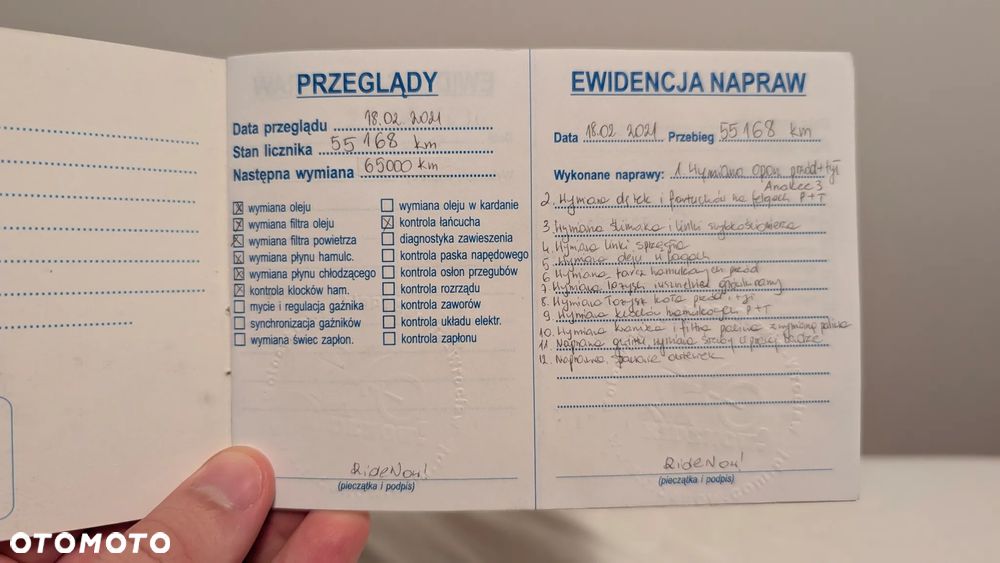 PRZEGLĄDY
Data przeglądu 18.02. 2021
Stan licznika 55168 km
Następna wymiana 65000 km
wymiana oleju
wymiana filtra oleju
wymiana filtra powietrza
wymiana płynu hamulc.
wymiana płynu chłodzącego
kontrola klocków ham.
mycie i regulacja gaźnika
synchronizacja gaźników
wymiana świec zapłon.
wymiana oleju w kardanie
kontrola łańcucha
diagnostyka zawieszenia
kontrola paska napędowego
kontrola osłon przegubów
kontrola rozrządu
kontrola zaworów
kontrola układu elektr.
kontrola zapłonu
RideNow!
(pieczątka i podpis)
EWIDENCJA NAPRAW
Data 18.02. 2021 Przebieg 55168 km
Wykonane naprawy: 1. Wymiana opon przód+tył
Anakee 3
2. Wymiana dętek i fartuchów na felgach P+T
3. Wymiana ślimaka i linki szybkościomierza
4. Wymiana linki sprzęgła
5. Wymiana oleju w lagach
6. Wymiana tarcz hamulcowych przód
7. Wymiana łożysk
8. Wymiana łożysk koła przód i tył
9. Wymiana klocków hamulcowych P+T
10. Wymiana kranika i filtra paliwa z wymianą paliwa
11. Naprawa gwintu, wymiana śruby w prawej
12. Naprawa, spawanie
RideNow!
(pieczątka i podpis)
OTOMOTO